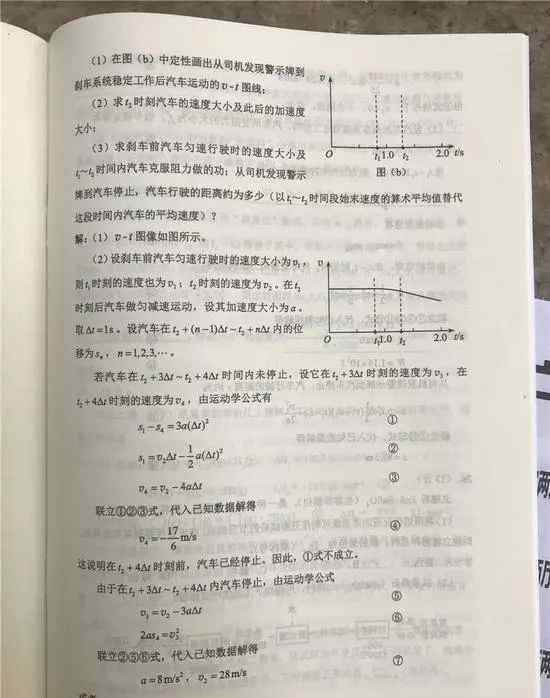 （1）在图（b）中定性画出从司机发现警示牌到
刹车系统稳定工作后汽车运动的v-t图线；
（2）求t₂时刻汽车的速度大小及此后的加速度
大小；
（3）求刹车前汽车匀速行驶时的速度大小及
t₁~t₂时间内汽车克服阻力做的功；从司机发现警示
牌到汽车停止，汽车行驶的距离约为多少（以t₁~t₂时间段始末速度的算术平均值替代
这段时间内汽车的平均速度）？
v
O
t₁
1.0
t₂
2.0
t/s
图（b）
解：（1）v-t图像如图所示。
（2）设刹车前汽车匀速行驶时的速度大小为v₁，
则t₁时刻的速度也为v₁；t₂时刻的速度为v₂。在t₂
时刻后汽车做匀减速运动，设其加速度大小为a。
取Δt=1s。设汽车在t₂+(n-1)Δt~t₂+nΔt内的位
移为sₙ，n=1,2,3,⋯。
v
O
t₁
1.0
t₂
2.0
t/s
若汽车在t₂+3Δt~t₂+4Δt时间内未停止，设它在t₂+3Δt时刻的速度为v₃，在
t₂+4Δt时刻的速度为v₄，由运动学公式有
s₁-s₄=3a(Δt)² ①
s₁=v₂Δt-1/2a(Δt)² ②
v₄=v₂-4aΔt ③
联立①②③式，代入已知数据解得
v₄=-17/6 m/s ④
这说明在t₂+4Δt时刻前，汽车已经停止。因此，①式不成立。
由于在t₂+3Δt~t₂+4Δt内汽车停止，由运动学公式
v₃=v₂-3aΔt ⑤
2as₄=v₃² ⑥
联立②⑤⑥式，代入已知数据解得
a=8m/s²，v₂=28m/s ⑦